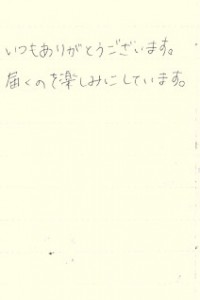 いつもありがとうございます。
届くのを楽しみにしています。